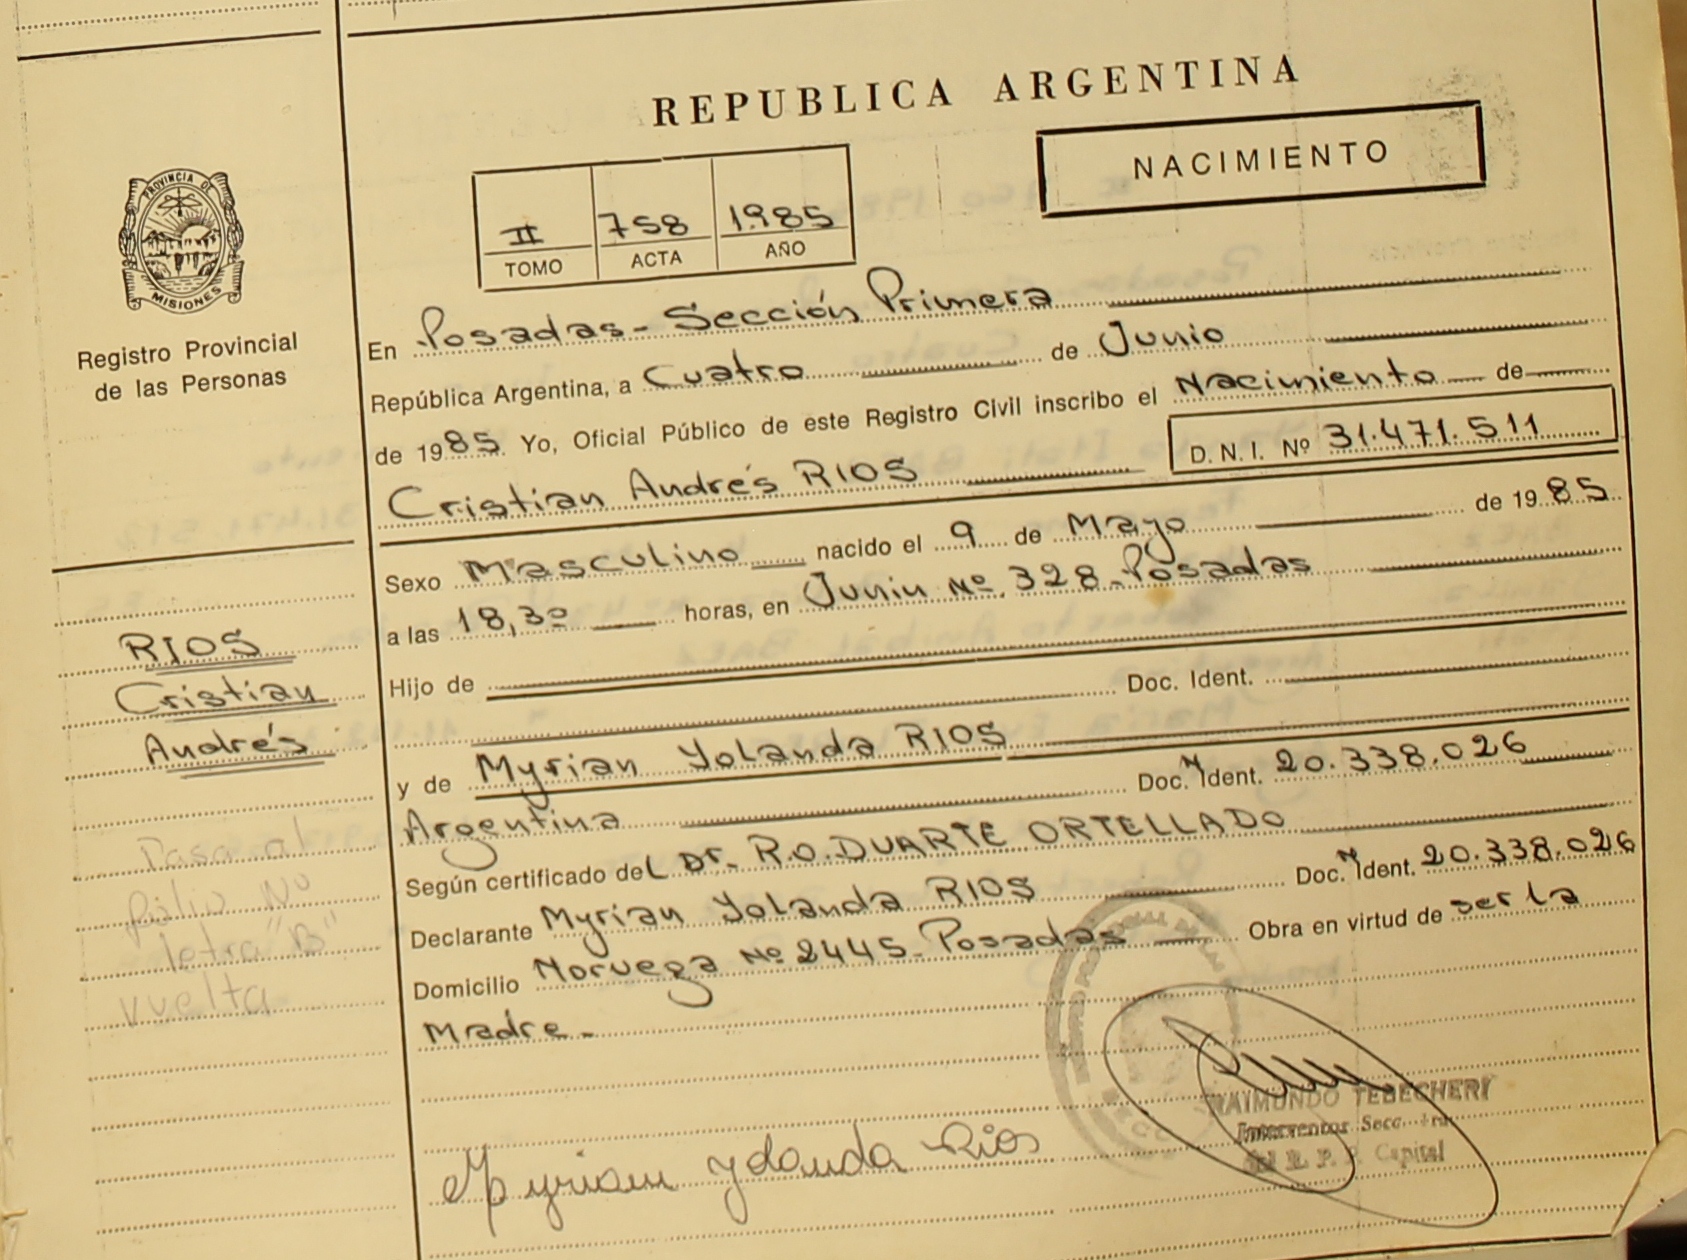 REPUBLICA ARGENTINA
NACIMIENTO
II 758 1985
TOMO ACTA AÑO
PROVINCIA DE
MISIONES
Registro Provincial
de las Personas
En Posadas - Sección Primera
República Argentina, a Cuatro de Junio
de 1985 Yo, Oficial Público de este Registro Civil inscribo el Nacimiento de
Cristian Andrés RIOS D. N. I. Nº 31.471.511
Sexo Masculino nacido el 9 de Mayo de 1985
a las 18,30 horas, en Junin Nº. 328 - Posadas
Hijo de
Doc. Ident.
y de Myrian Yolanda RIOS
Argentina Doc. Ident. 20.338.026
Según certificado del Dr. R.O. DUARTE ORTELLADO
Declarante Myrian Yolanda RIOS Doc. Ident. 20.338.026
Domicilio Noruega Nº 2445 - Posadas Obra en virtud de ser la
Madre -
RIOS
Cristian
Andrés
Pasa al
folio Nº
letra "B"
vuelta
Myriam Yolanda Rios
RAIMUNDO TEBECHERI
Interventor Secc.
del R. P. P. Capital